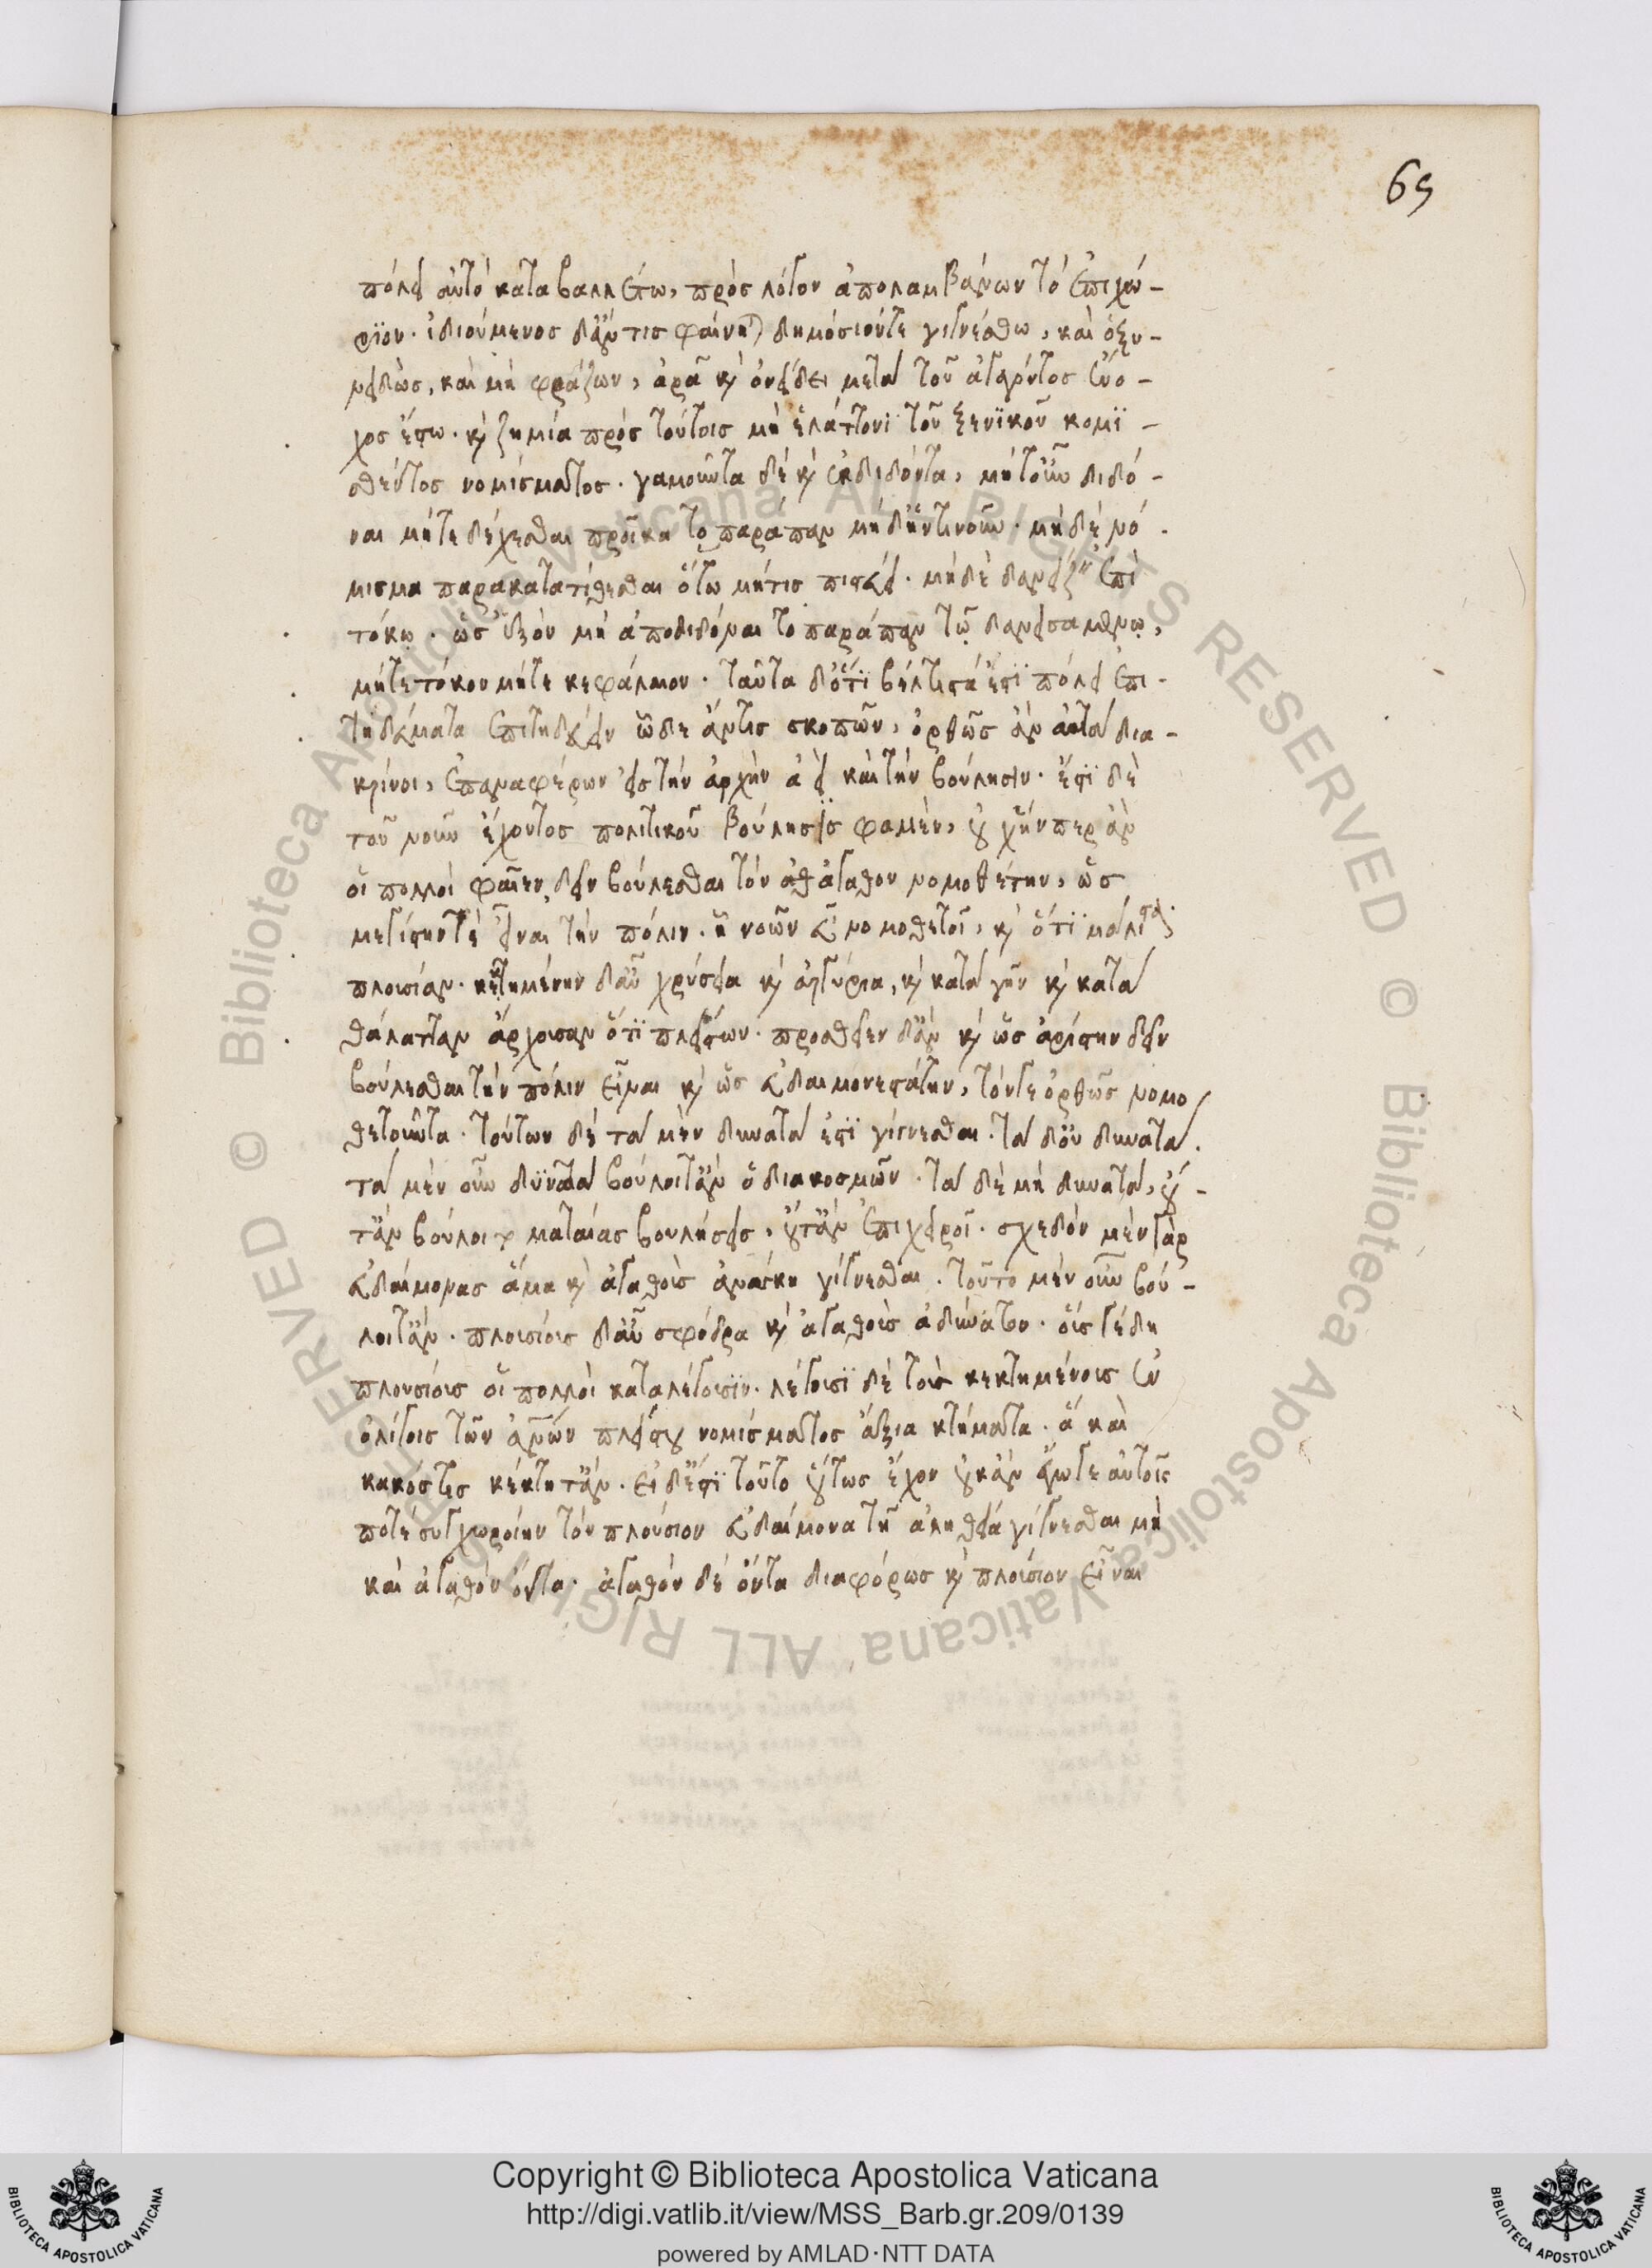 69
πόλει αὐτὸ καταβαλλέτω, πρὸς λόγον ἀπολαμβάνων τὸ ἐπιχώ-
ριον. ἰδιούμενος δἄν τις φαίνηται δημόσιόντε γιγνέσθω, καὶ ὁ ξυ-
νειδὼς, καὶ μὴ φράζων, ἀρᾶ καὶ ὀνείδει μετὰ τοῦ ἀγαγόντος ἔνο-
χος ἔστω. καὶ ζημία πρὸς τούτοις μὴ ἐλάττονι τοῦ ξενικοῦ κομι-
σθέντος νομίσματος. γαμοῦντα δὲ καὶ ἐκδιδόντα, μήτοὖν διδό-
ναι μήτε δέχεσθαι προῖκα το παράπαν μηδἥντινοῦν. μηδὲ νό-
μισμα παρακατατίθεσθαι ὅτω μήτις πιστεύει. μηδὲ δανείζειν ἐπὶ
τόκῳ. ὡς ἐξὸν μὴ ἀποδιδόναι το παράπαν τῷ δανεισαμένῳ,
μήτε τόκον μήτε κεφάλαιον. ταῦτα δὅτι βέλτιστά ἐστι πόλει ἐπι-
τηδεύματα ἐπιτηδεύειν ὧδε ἄντις σκοπῶν, ὀρθῶς ἂν αὐτὰ δια-
κρίνοι, ἐπαναφέρων εἰς τὴν ἀρχὴν ἀεὶ καὶ τὴν βούλησιν. ἔστι δὲ
τοῦ νοῦν ἔχοντος πολιτικοῦ βούλησις φαμὲν, οὐχἥνπερ ἂν
οἱ πολλοὶ φαῖεν, δεῖν βούλεσθαι τὸν ἀγαθὸν νομοθέτην, ὡς
μεγίστηντὲ εἶναι τὴν πόλιν. ᾗ νοῶν εὖ νομοθετοῖ, καὶ ὅτι μάλιστα
πλουσίαν. κεκτημένην δαὖ χρύσεια καὶ ἀργύρια, καὶ κατὰ γῆν καὶ κατὰ
θάλατταν ἄρχουσαν ὅτι πλείστων. προσθεῖεν δἂν καὶ ὡς ἀρίστην δεῖν
βούλεσθαι τὴν πόλιν εἶναι καὶ ὡς εὐδαιμονεστάτην, τόνγε ὀρθῶς νομο
θετοῦντα. τούτων δὲ τὰ μὲν δυνατά ἐστι γίγνεσθαι. τὰ δοὐ δυνατά.
τὰ μὲν οὖν δυνατὰ βούλοιτἂν ὁ διακοσμῶν. τὰ δὲ μὴ δυνατά, οὔ-
τἂν βούλοιτο ματαίας βουλήσεις, οὔτἂν ἐπιχειροῖ. σχεδὸν μὲν γὰρ
εὐδαίμονας ἅμα καὶ ἀγαθοὺς ἀνάγκη γίγνεσθαι. τοῦτο μὲν οὖν βού-
λοιτἄν. πλουσίους δαὖ σφόδρα καὶ ἀγαθοὺς ἀδύνατον. οὕς γὲ δὴ
πλουσίους οἱ πολλοὶ καταλέγουσιν. λέγουσι δὲ τοὺς κεκτημένους ἐν
ὀλίγοις τῶν ἀνθρώπων πλείστου νομίσματος ἄξια κτήματα. ἃ καὶ
κακός τις κέκτητἄν. εἰ δἔστι τοῦτο οὕτως ἔχον οὐκ ἂν ἔγωγε αὐτοῖς
ποτὲ συγχωροίην τὸν πλούσιον εὐδαίμονα τῇ ἀληθείᾳ γίγνεσθαι μὴ
καὶ ἀγαθὸν ὄντα. ἀγαθὸν δὲ ὄντα διαφόρως καὶ πλούσιον εἶναι
© Biblioteca Apostolica Vaticana ALL RIGHTS RESERVED © Biblioteca Apostolica Vaticana ALL RIGHTS RESERVED
Copyright © Biblioteca Apostolica Vaticana
http://digi.vatlib.it/view/MSS_Barb.gr.209/0139
powered by AMLAD·NTT DATA
BIBLIOTECA APOSTOLICA VATICANA
BIBLIOTECA APOSTOLICA VATICANA